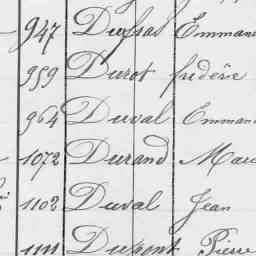 947 Dufras Emman
959 Durot frédéric
964 Duval Emman
1072 Durand Mau
1103 Duval Jean
1111 Dupont Pierre